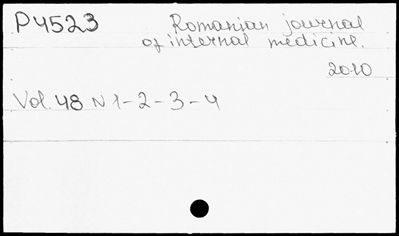 P4523 Romanian journal
of internal medicine.
2010
Vol. 48 N 1-2-3-4